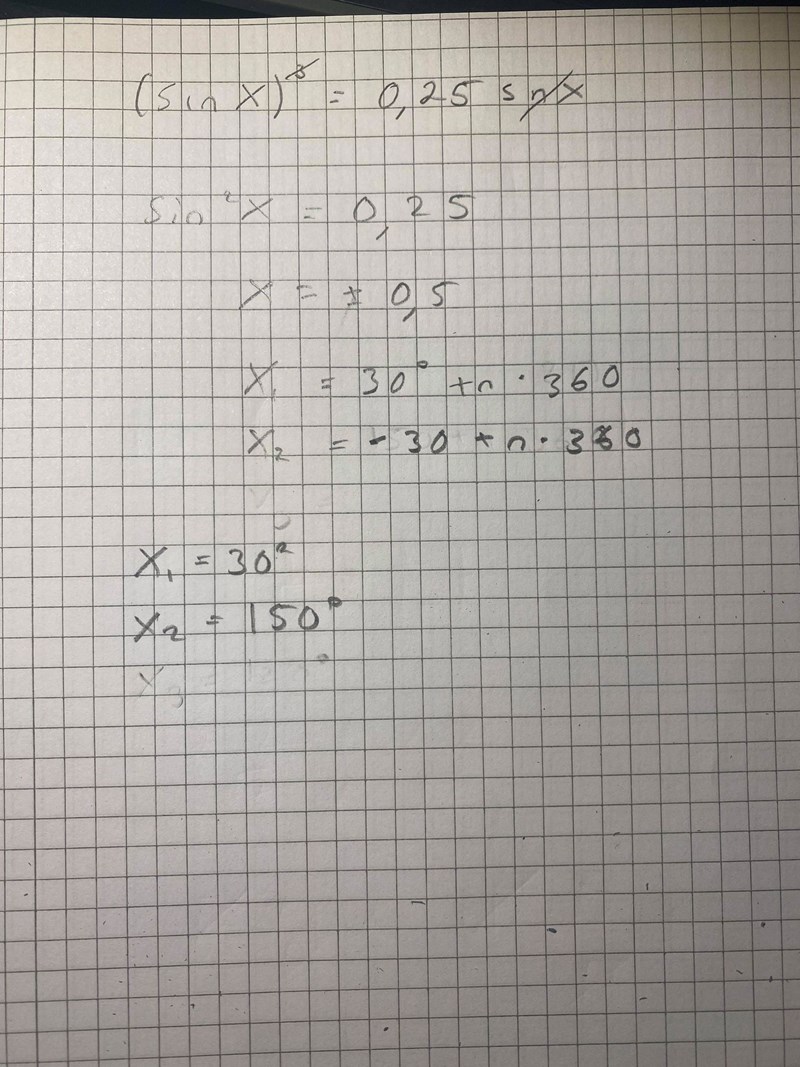 (sin X)³ = 0,25 snx
sin²X = 0,25
X = ± 0,5
X₁ = 30° +n · 360
X₂ = - 30 + n · 360
X₁ = 30°
X₂ = 150°
X₃